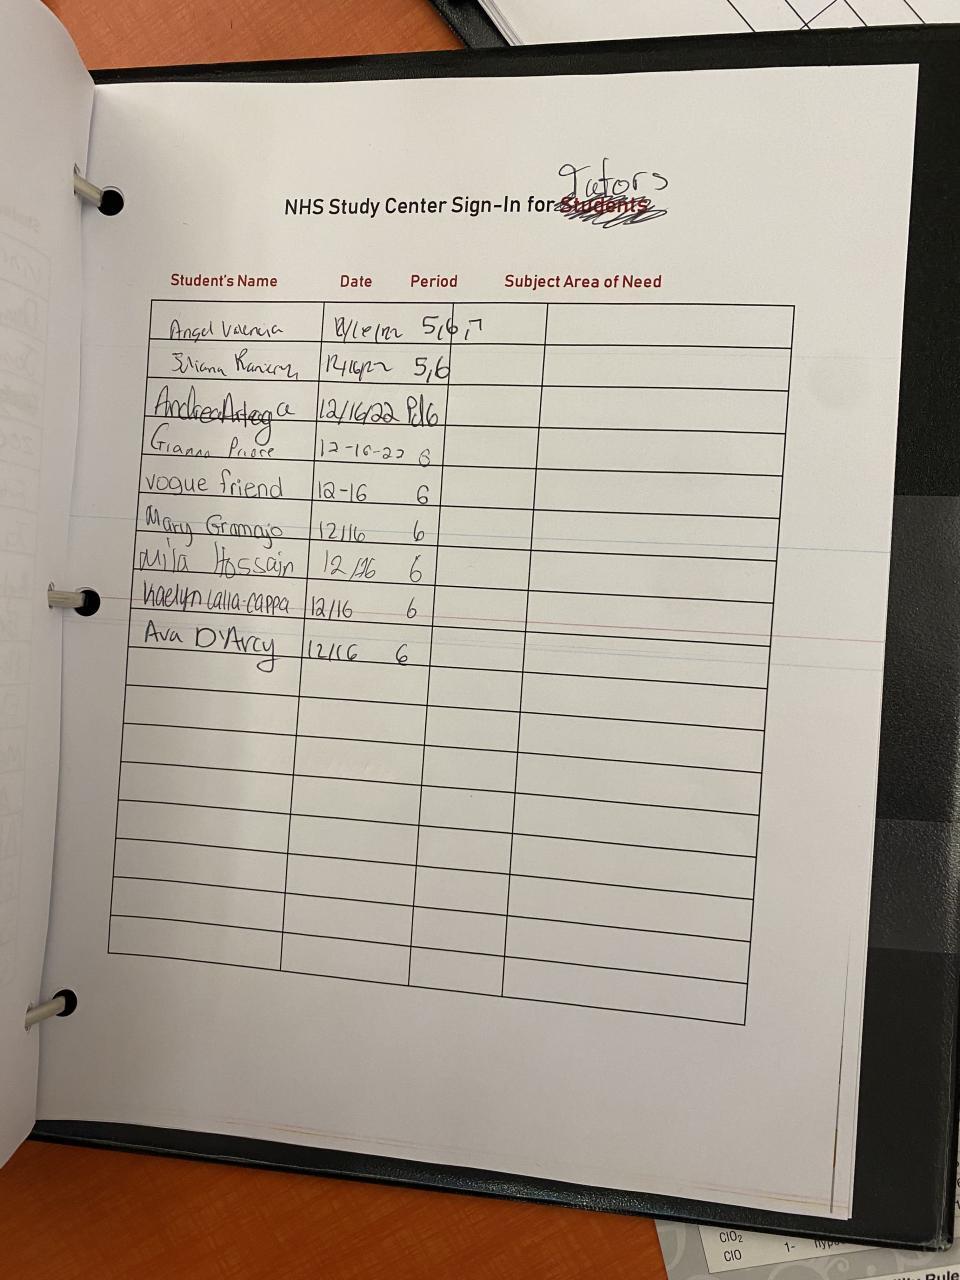 Tutors
NHS Study Center Sign-In for Students
Student's Name Date Period Subject Area of Need
Angel Valencia 12/16/22 5,6,7
5,6
Andrea Arteaga 12/16/22 Pd6
Gianna Priore 12-16-22 6
vogue friend 12-16 6
Mary Gramajo 12/16 6
Mila Hossain 12/16 6
Kaelyn Lalla-Cappa 12/16 6
Ava D'Arcy 12/16 6
ClO2
ClO 1- hypo
Rule